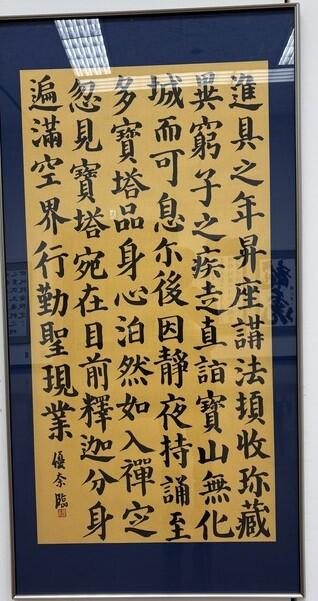 進具之年昇座講法頓收珎藏
異窮子之疾走直詣寶山無化
城而可息尔後因靜夜持誦至
多寶塔品身心泊然如入禪定
忽見寶塔宛在目前釋迦分身
遍滿空界行勤聖現業
優奈臨